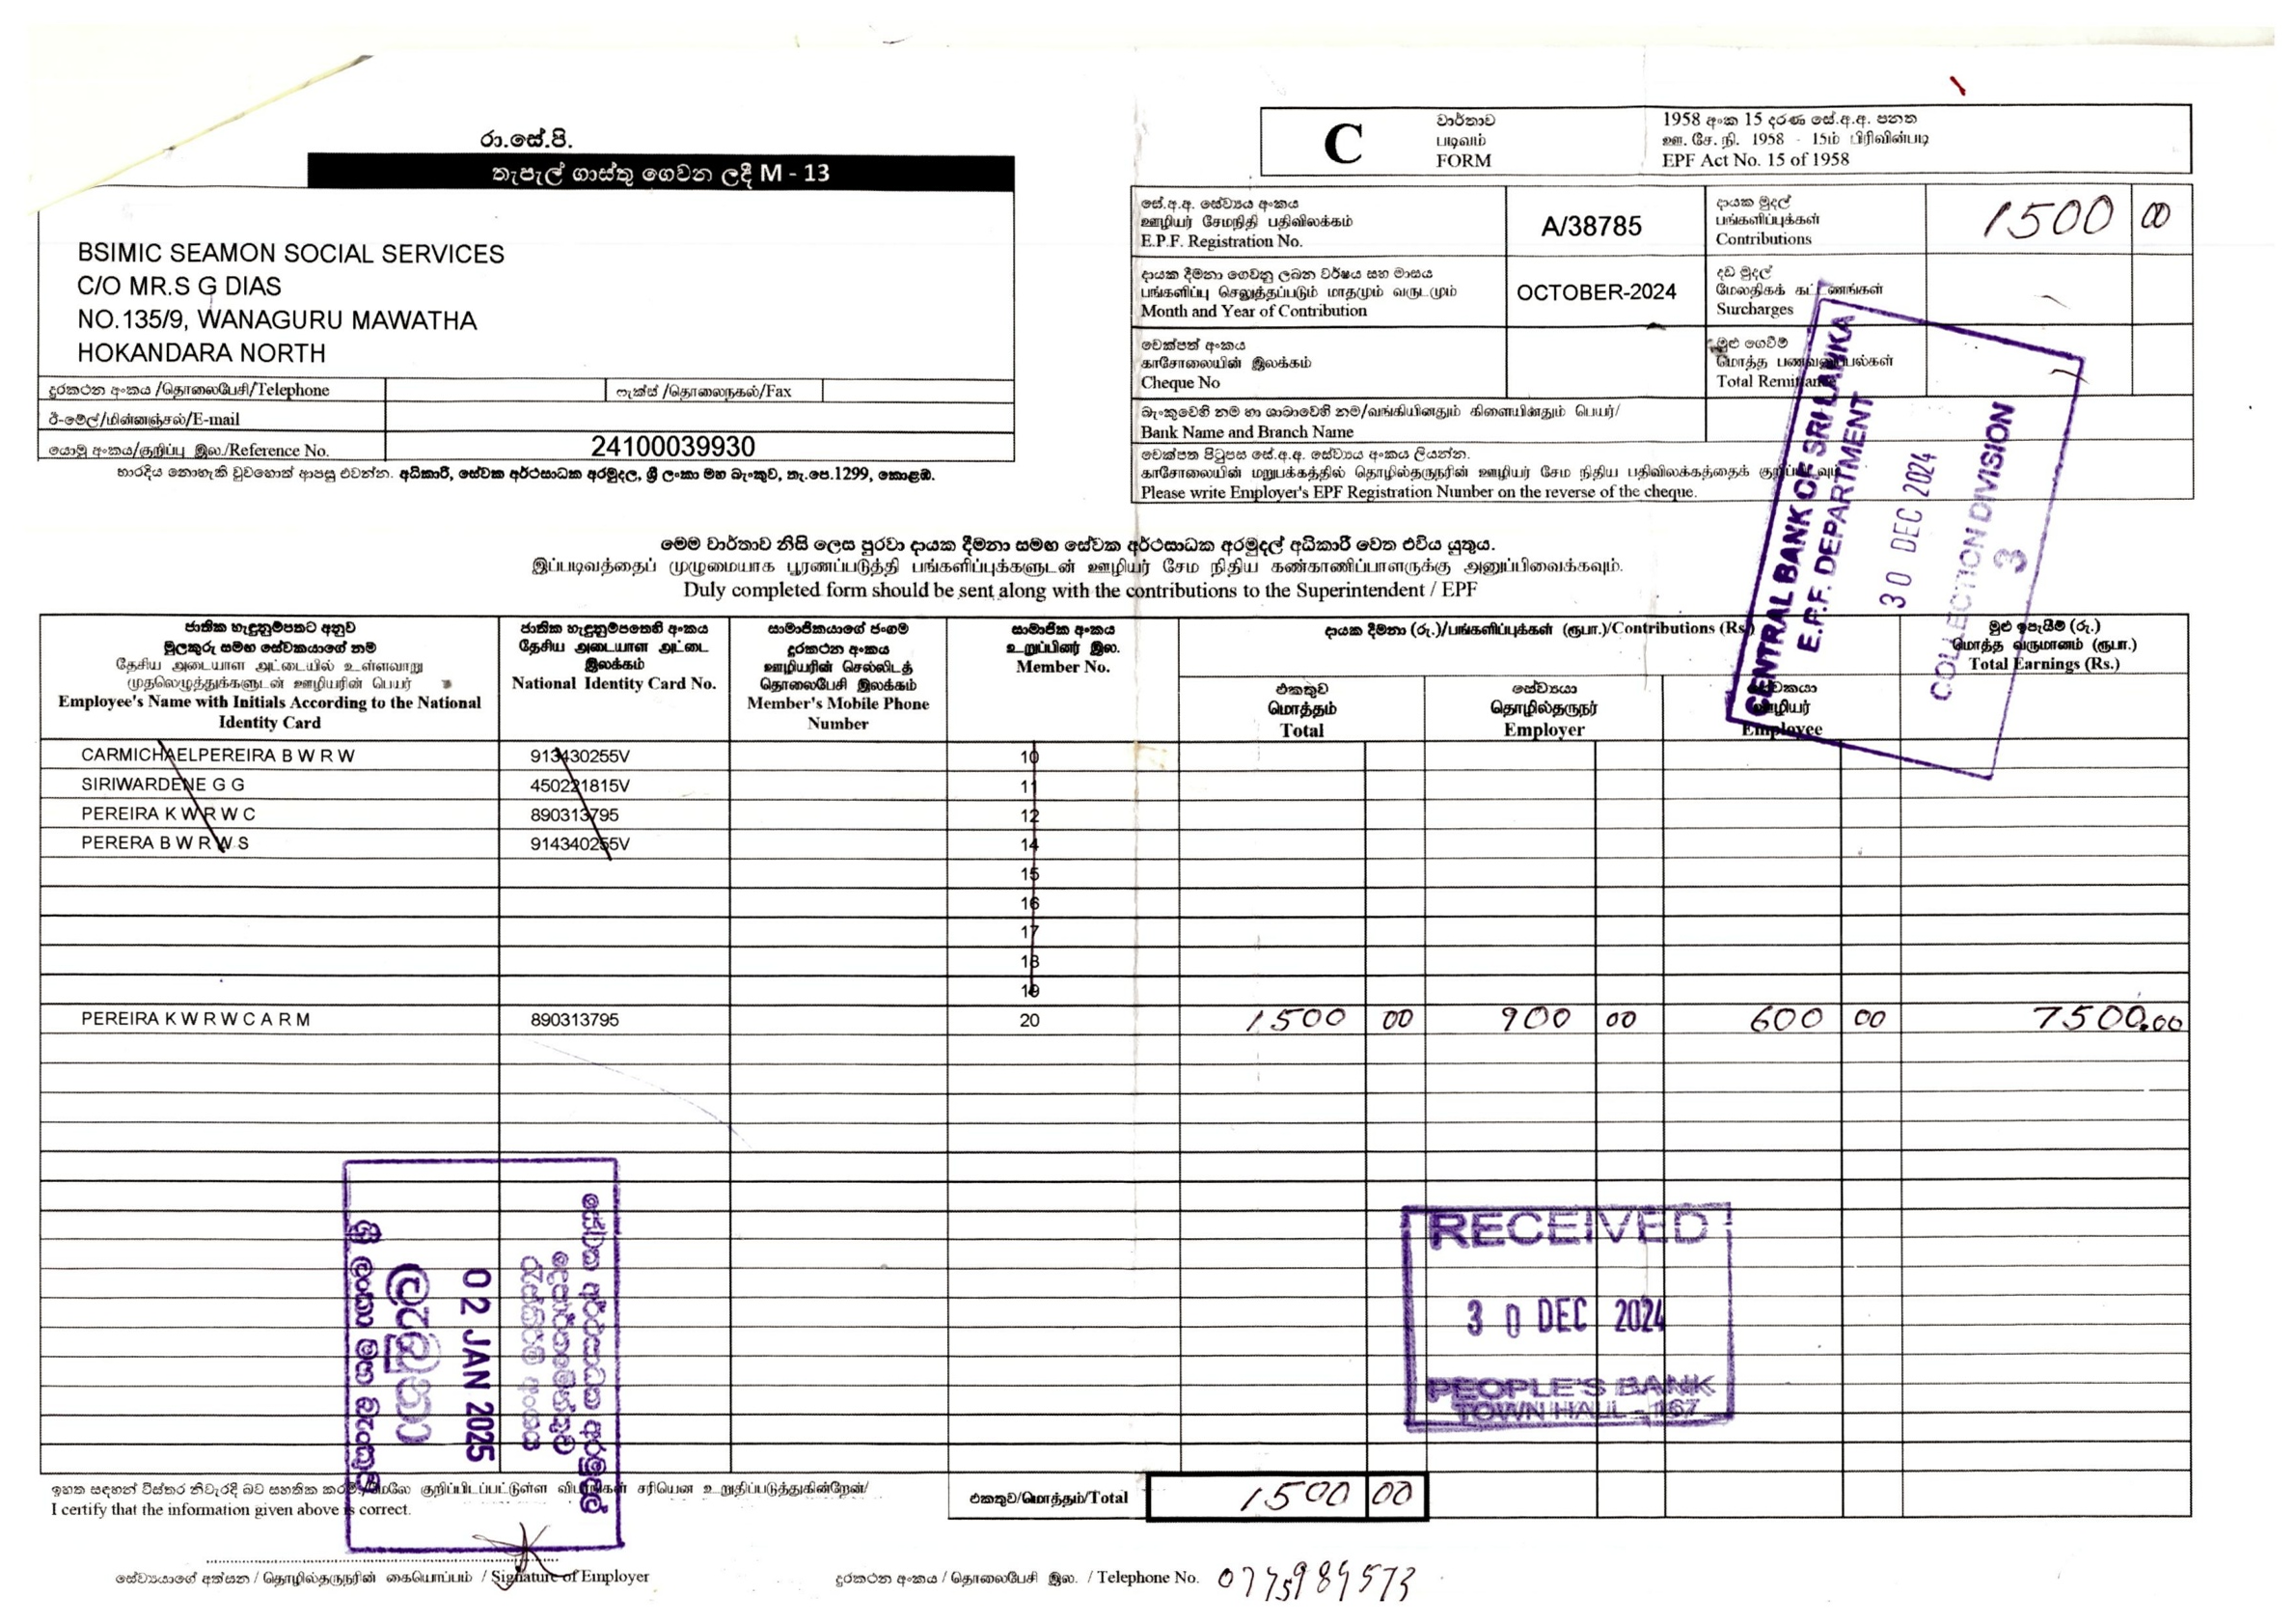 රා.සේ.පි.
තැපැල් ගාස්තු ගෙවන ලදී M - 13
BSIMIC SEAMON SOCIAL SERVICES
C/O MR.S G DIAS
NO.135/9, WANAGURU MAWATHA
HOKANDARA NORTH
දුරකථන අංකය /தொலைபேசி/Telephone
ෆැක්ස් /தொலைநகல்/Fax
ඊ-මේල්/மின்னஞ்சல்/E-mail
යොමු අංකය/குறிப்பு இல./Reference No. 24100039930
භාරදිය නොහැකි වුවහොත් ආපසු එවන්න. අධිකාරී, සේවක අර්ථසාධක අරමුදල, ශ්‍රී ලංකා මහ බැංකුව, තැ.පෙ.1299, කොළඹ.
C
වාර්තාව
படிவம்
FORM
1958 අංක 15 දරණ සේ.අ.අ. පනත
ஊ. சே. நி. 1958 - 15ம் பிரிவின்படி
EPF Act No. 15 of 1958
සේ.අ.අ. සේව්‍යය අංකය
ஊழியர் சேமநிதி பதிவிலக்கம்
E.P.F. Registration No.
A/38785
දායක මුදල්
பங்களிப்புக்கள்
Contributions
1500 00
දායක දීමනා ගෙවනු ලබන වර්ෂය සහ මාසය
பங்களிப்பு செலுத்தப்படும் மாதமும் வருடமும்
Month and Year of Contribution
OCTOBER-2024
දඩ මුදල්
மேலதிகக் கட்டணங்கள்
Surcharges
චෙක්පත් අංකය
காசோலையின் இலக்கம்
Cheque No
මුළු ගෙවීම්
மொத்த
Total Remittance
බැංකුවෙහි නම හා ශාඛාවෙහි නම/வங்கியினதும் கிளையினதும் பெயர்/
Bank Name and Branch Name
චෙක්පත පිටුපස සේ.අ.අ. සේව්‍යය අංකය ලියන්න.
காசோலையின் மறுபக்கத்தில் தொழில்தருநரின் ஊழியர் சேம நிதிய பதிவிலக்கத்தைக் குறிப்பிடவும்
Please write Employer's EPF Registration Number on the reverse of the cheque.
CENTRAL BANK OF SRI LANKA
E.P.F. DEPARTMENT
30 DEC 2024
COLLECTION DIVISION
3
මෙම වාර්තාව නිසි ලෙස පුරවා දායක දීමනා සමඟ සේවක අර්ථසාධක අරමුදල් අධිකාරී වෙත එවිය යුතුය.
இப்படிவத்தைப் முழுமையாக பூரணப்படுத்தி பங்களிப்புக்களுடன் ஊழியர் சேம நிதிய கண்காணிப்பாளருக்கு அனுப்பிவைக்கவும்.
Duly completed form should be sent along with the contributions to the Superintendent / EPF
ජාතික හැඳුනුම්පතට අනුව
මුලකුරු සමඟ සේවකයාගේ නම
தேசிய அடையாள அட்டையில் உள்ளவாறு
முதலெழுத்துக்களுடன் ஊழியரின் பெயர்
Employee's Name with Initials According to the National
Identity Card
ජාතික හැඳුනුම්පතෙහි අංකය
தேசிய அடையாள அட்டை
இலக்கம்
National Identity Card No.
සාමාජිකයාගේ ජංගම
දුරකථන අංකය
ஊழியரின் செல்லிடத்
தொலைபேசி இலக்கம்
Member's Mobile Phone
Number
සාමාජික අංකය
உறுப்பினர் இல.
Member No.
දායක දීමනා (රු.)/பங்களிப்புக்கள் (ரூபா.)/Contributions (Rs.)
එකතුව
மொத்தம்
Total
සේව්‍යයා
தொழில்தருநர்
Employer
සේවකයා
ஊழியர்
Employee
මුළු ඉපැයීම් (රු.)
மொத்த வருமானம் (ரூபா.)
Total Earnings (Rs.)
CARMICHAELPEREIRA B W R W 913430255V 10
SIRIWARDENE G G 450221815V 11
PEREIRA K W R W C 890313795 12
PERERA B W R W S 914340255V 14
15
16
17
18
19
PEREIRA K W R W C A R M 890313795 20 1500 00 900 00 600 00 7500.00
සේවක අර්ථසාධක අරමුදල්
දෙපාර්තමේන්තුව
02 JAN 2025
ලැබුණා
ශ්‍රී ලංකා මහ බැංකුව
RECEIVED
30 DEC 2024
PEOPLE'S BANK
TOWN HALL - 167
ඉහත සඳහන් විස්තර නිවැරදි බව සහතික කරමි./மேலே குறிப்பிடப்பட்டுள்ள விபரங்கள் சரியென உறுதிப்படுத்துகின்றேன்/
I certify that the information given above is correct.
එකතුව/மொத்தம்/Total 1500 00
සේව්‍යයාගේ අත්සන / தொழில்தருநரின் கையொப்பம் / Signature of Employer
දුරකථන අංකය / தொலைபேசி இல. / Telephone No. 0775989573